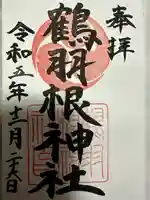 奉拝
鶴羽根神社
令和五年十二月二十六日